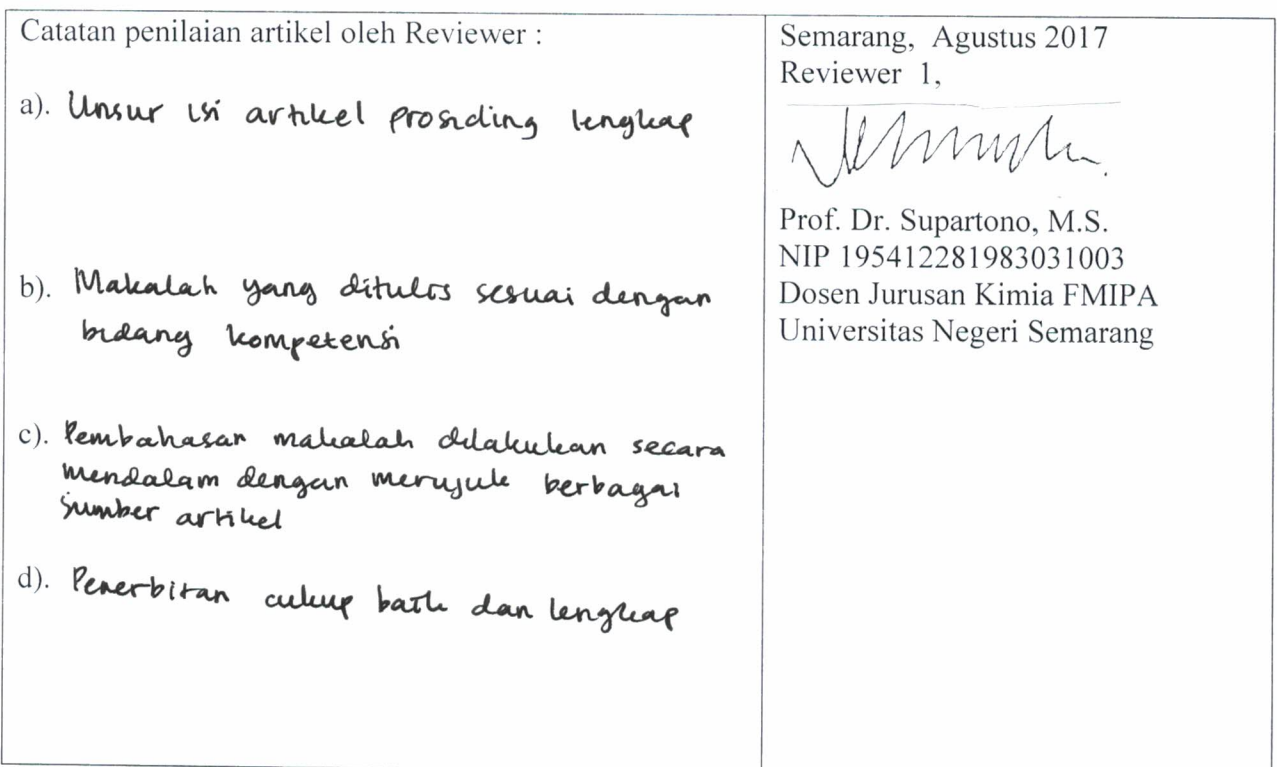 Catatan penilaian artikel oleh Reviewer :
a). Unsur isi artikel prosiding lengkap
b). Makalah yang ditulis sesuai dengan
bidang kompetensi
c). Pembahasan makalah dilakukan secara
mendalam dengan merujuk berbagai
sumber artikel
d). Penerbitan cukup baik dan lengkap
Semarang, Agustus 2017
Reviewer 1,
Prof. Dr. Supartono, M.S.
NIP 195412281983031003
Dosen Jurusan Kimia FMIPA
Universitas Negeri Semarang